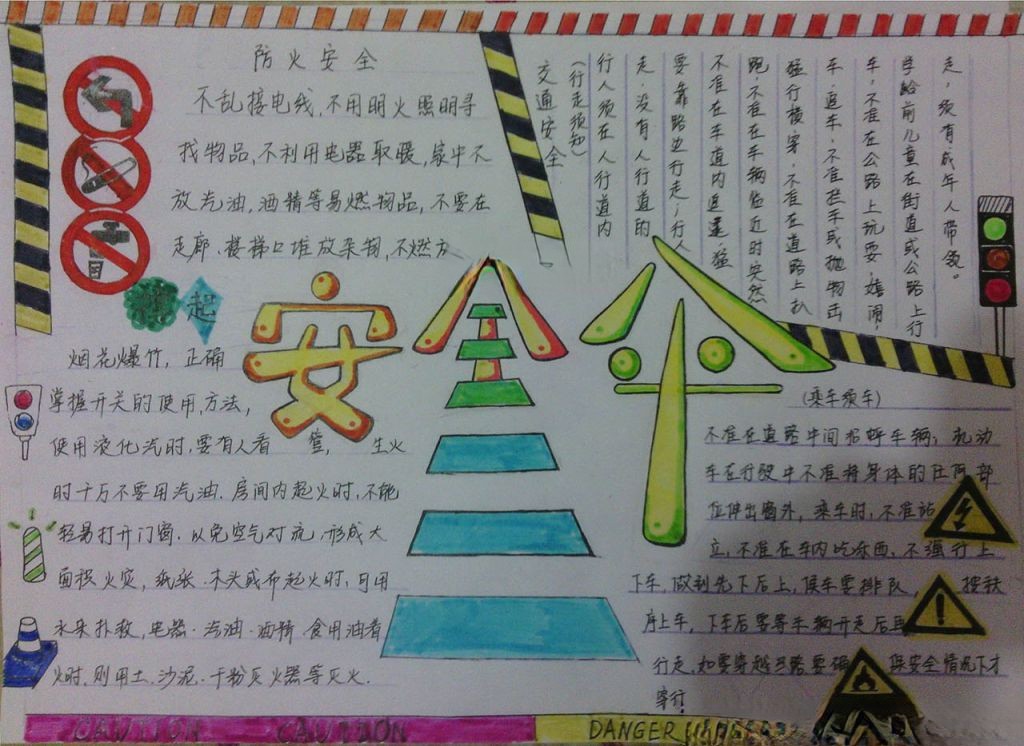 防火安全
不乱接电线,不用明火照明寻
找物品,不利用电器取暖,家中不
放汽油,酒精等易燃物品,不要在
走廊、楼梯口堆放杂物,不燃方
烟花爆竹,正确
掌握开关的使用,方法,
使用液化汽时,要有人看管,生火
时千万不要用汽油.房间内起火时,不能
轻易打开门窗.以免空气对流.形成大
面积火灾,纸张.木头或布起火时,可用
水来扑救,电器.汽油.酒精.食用油着
火时,则用土.沙泥.干粉灭火器等灭火.
安全伞
交通安全
(行走须知)
行人须在人行道内
走,没有人行道的
要靠路边行走;行人
不准在车道内追逐,猛
跑,不准在车辆临近时突然
猛行横穿,不准在道路上扒
车、追车,不准拦车或抛物击
车,不准在公路上玩耍,嬉闹,
学龄前儿童在街道或公路上行
走,须有成年人带领。
(乘车须车)
不准在道路中间招呼车辆;机动
车在行驶中不准将身体的任何部
位伸出窗外,乘车时,不准站
立,不准在车内吃东西,不强行上
下车,做到先下后上,候车要排队,按秩
序上车,下车后要等车辆开走后再
行走,如要穿越马路要确保安全情况下才
穿行.
CAUTION CAUTION DANGER